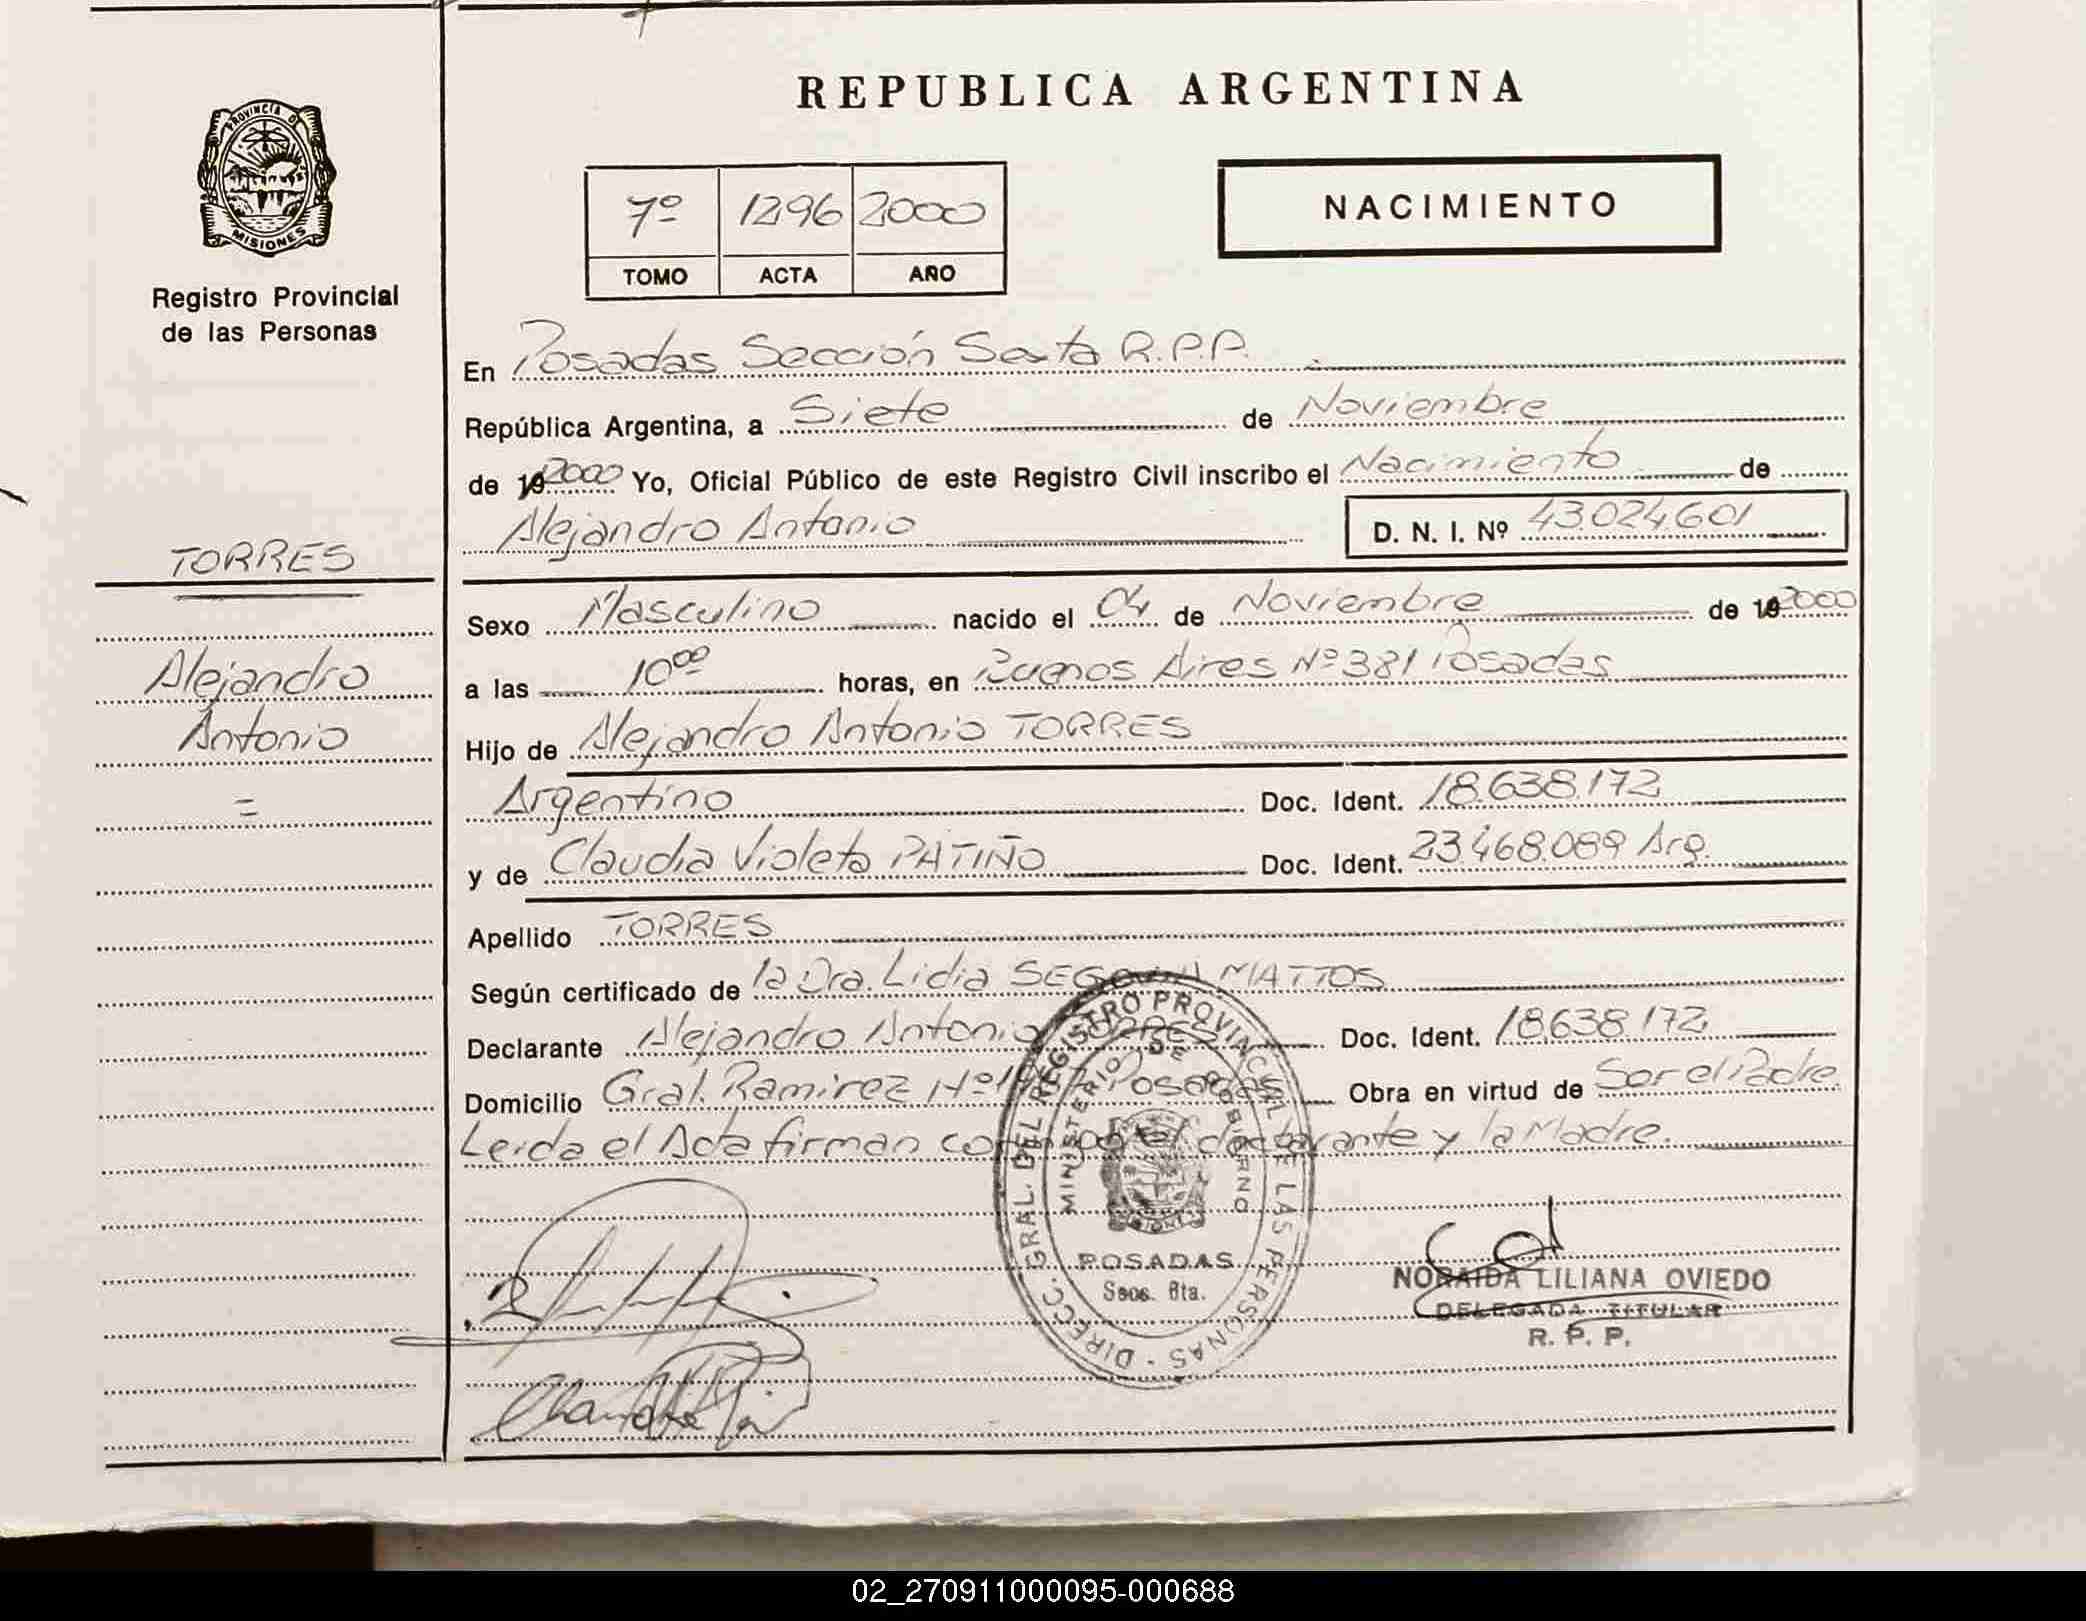 REPUBLICA ARGENTINA
PROVINCIA DE
MISIONES
Registro Provincial
de las Personas
7º 1296 2000
TOMO ACTA AÑO
NACIMIENTO
TORRES
Alejandro
Antonio
=
En Posadas Sección Sexta R.P.P.
República Argentina, a Siete de Noviembre
de 19 2000 Yo, Oficial Público de este Registro Civil inscribo el Nacimiento de
Alejandro Antonio D. N. I. Nº 43.024.601
Sexo Masculino nacido el 04 de Noviembre de 19 2000
a las 10⁰⁰ horas, en Buenos Aires Nº 381 Posadas
Hijo de Alejandro Antonio TORRES
Argentino Doc. Ident. 18.638.172
y de Claudia Violeta PATIÑO Doc. Ident. 23.468.089 Arg.
Apellido TORRES
Según certificado de la Dra. Lidia SEGOVIA MATTOS
Declarante Alejandro Antonio TORRES Doc. Ident. 18.638.172
Domicilio Gral. Ramirez Nº Posadas Obra en virtud de Ser el Padre
Leida el Acta firman conmigo el declarante y la Madre.
DIRECC. GRAL. DEL REGISTRO PROVINCIAL DE LAS PERSONAS
MINISTERIO DE GOBIERNO
MISIONES
POSADAS
Secc. 6ta.
NORAIDA LILIANA OVIEDO
DELEGADA TITULAR
R. P. P.
02_270911000095-000688